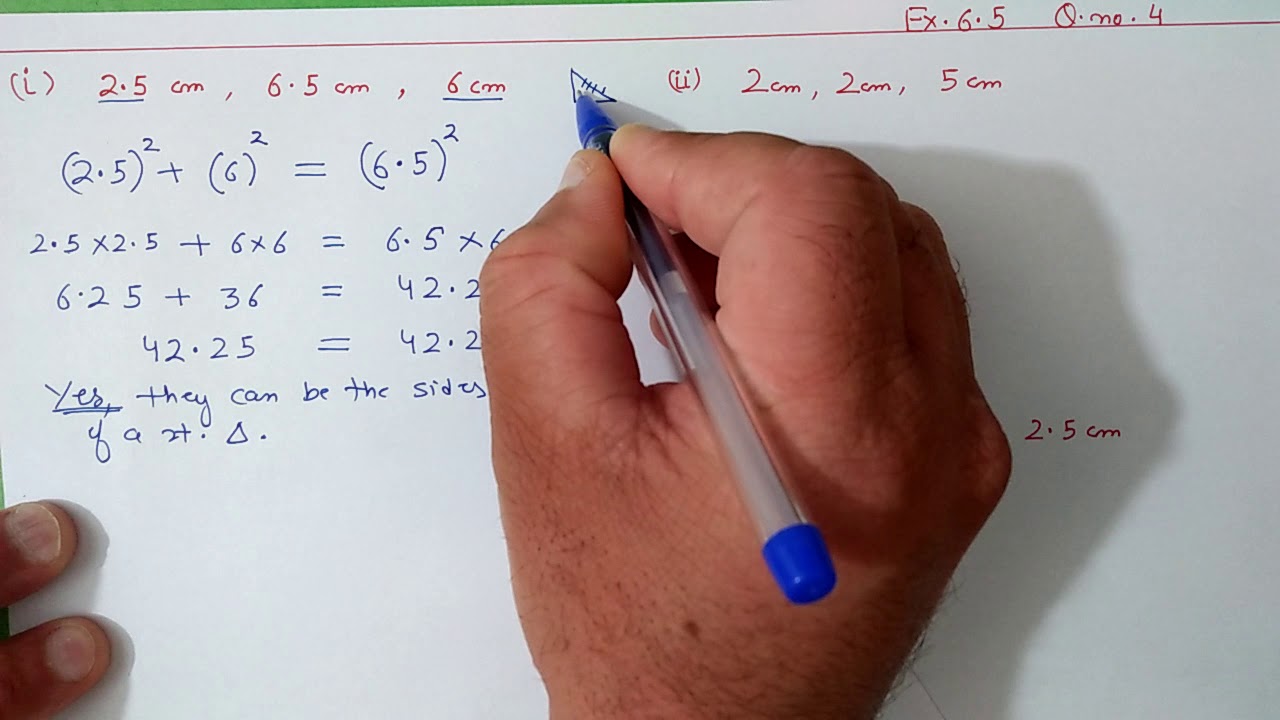 Ex. 6.5 Q.no.4
(i) 2.5 cm, 6.5 cm, 6 cm
(ii) 2cm, 2cm, 5cm
(2.5)² + (6)² = (6.5)²
2.5×2.5 + 6×6 = 6.5 ×6
6.25 + 36 = 42.2
42.25 = 42.2
Yes, they can be the sides
of a rt. Δ.
2.5 cm